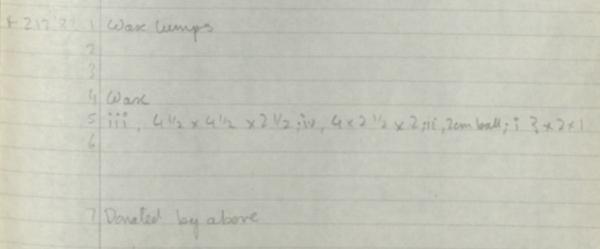 1 Wax lumps
2
3
4 Wax
5 iii, 4 1/2 x 4 1/2 x 2 1/2; iv, 4 x 2 1/2 x 2; ii, 2cm ball; i 3 x 2 x 1
6
7 Donated by above